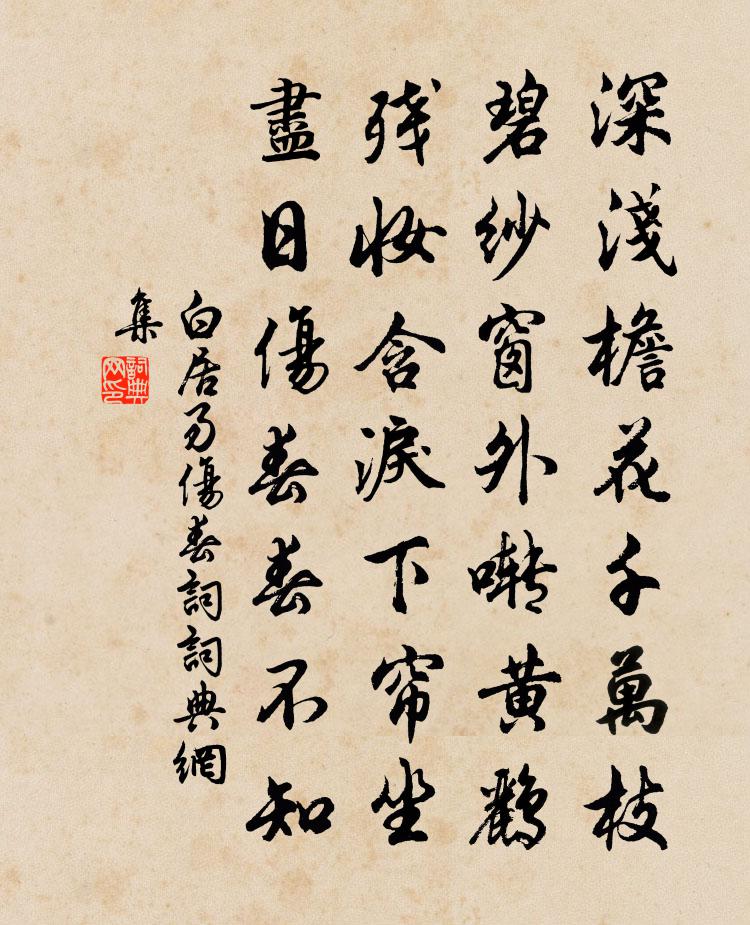 深淺檐花千萬枝
碧紗窗外囀黃鸝
残妝含淚下帘坐
盡日傷春春不知
白居易傷春詞詞典網
集
詞典
网印